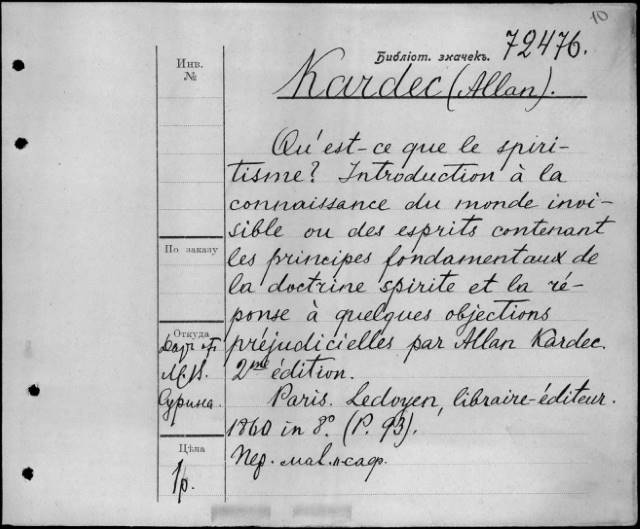 10
Библіот. значекъ. 72476.
Инв.
№
Kardec (Allan).
Qu'est-ce que le spiri-
tisme? Introduction à la
connaissance du monde invi-
sible ou des esprits contenant
les principes fondamentaux de
la doctrine spirite et la ré-
ponse à quelques objections
préjudicielles par Allan Kardec.
2me édition.
Paris. Ledoyen, libraire-éditeur.
1860 in 8º. (P. 93).
Пер.
По заказу
Откуда
Даръ
М. В.
Сурина.
Цѣна
1р.